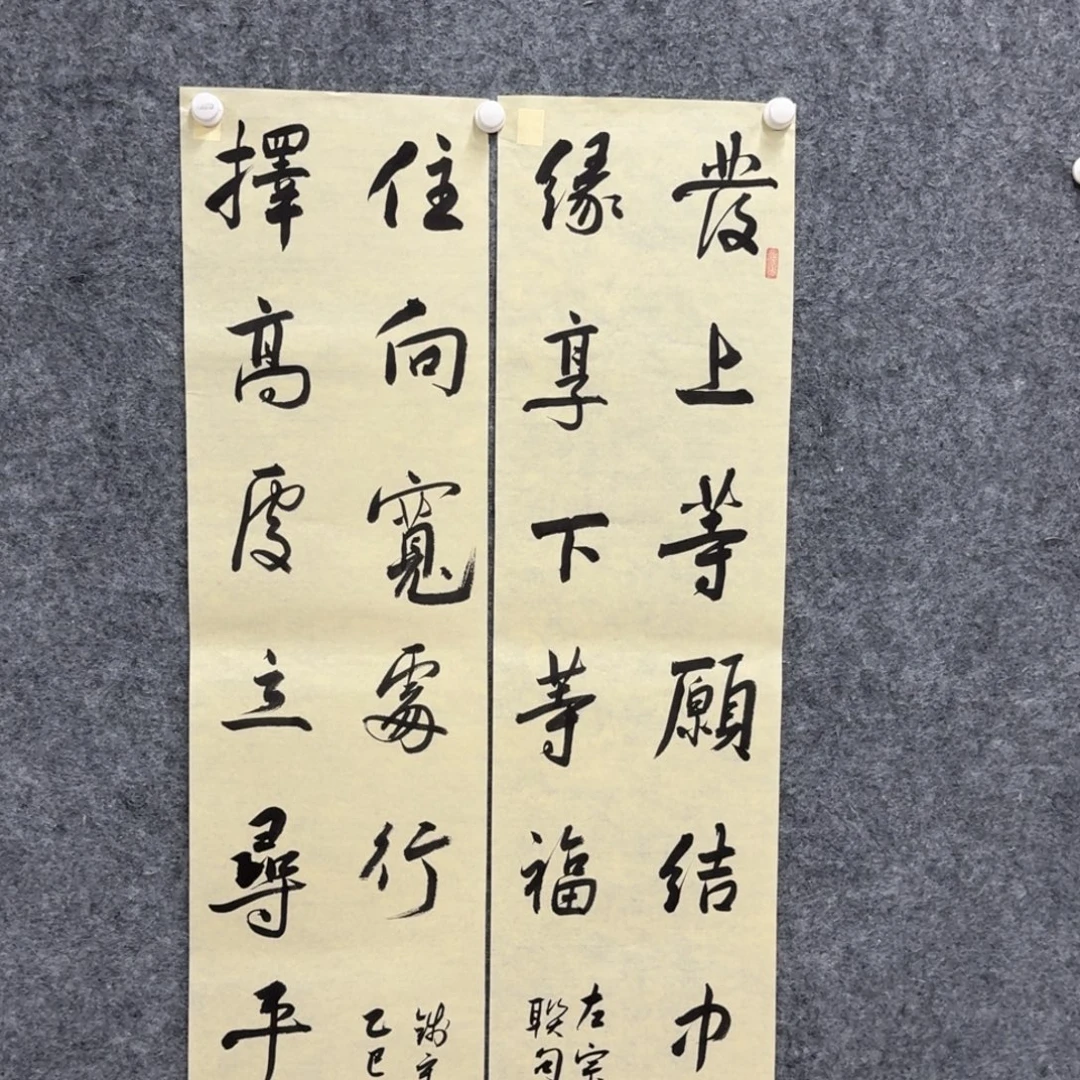 發上等願結中
緣享下等福
左宗
聯句
擇高處立尋平
住向寬處行
乙巳